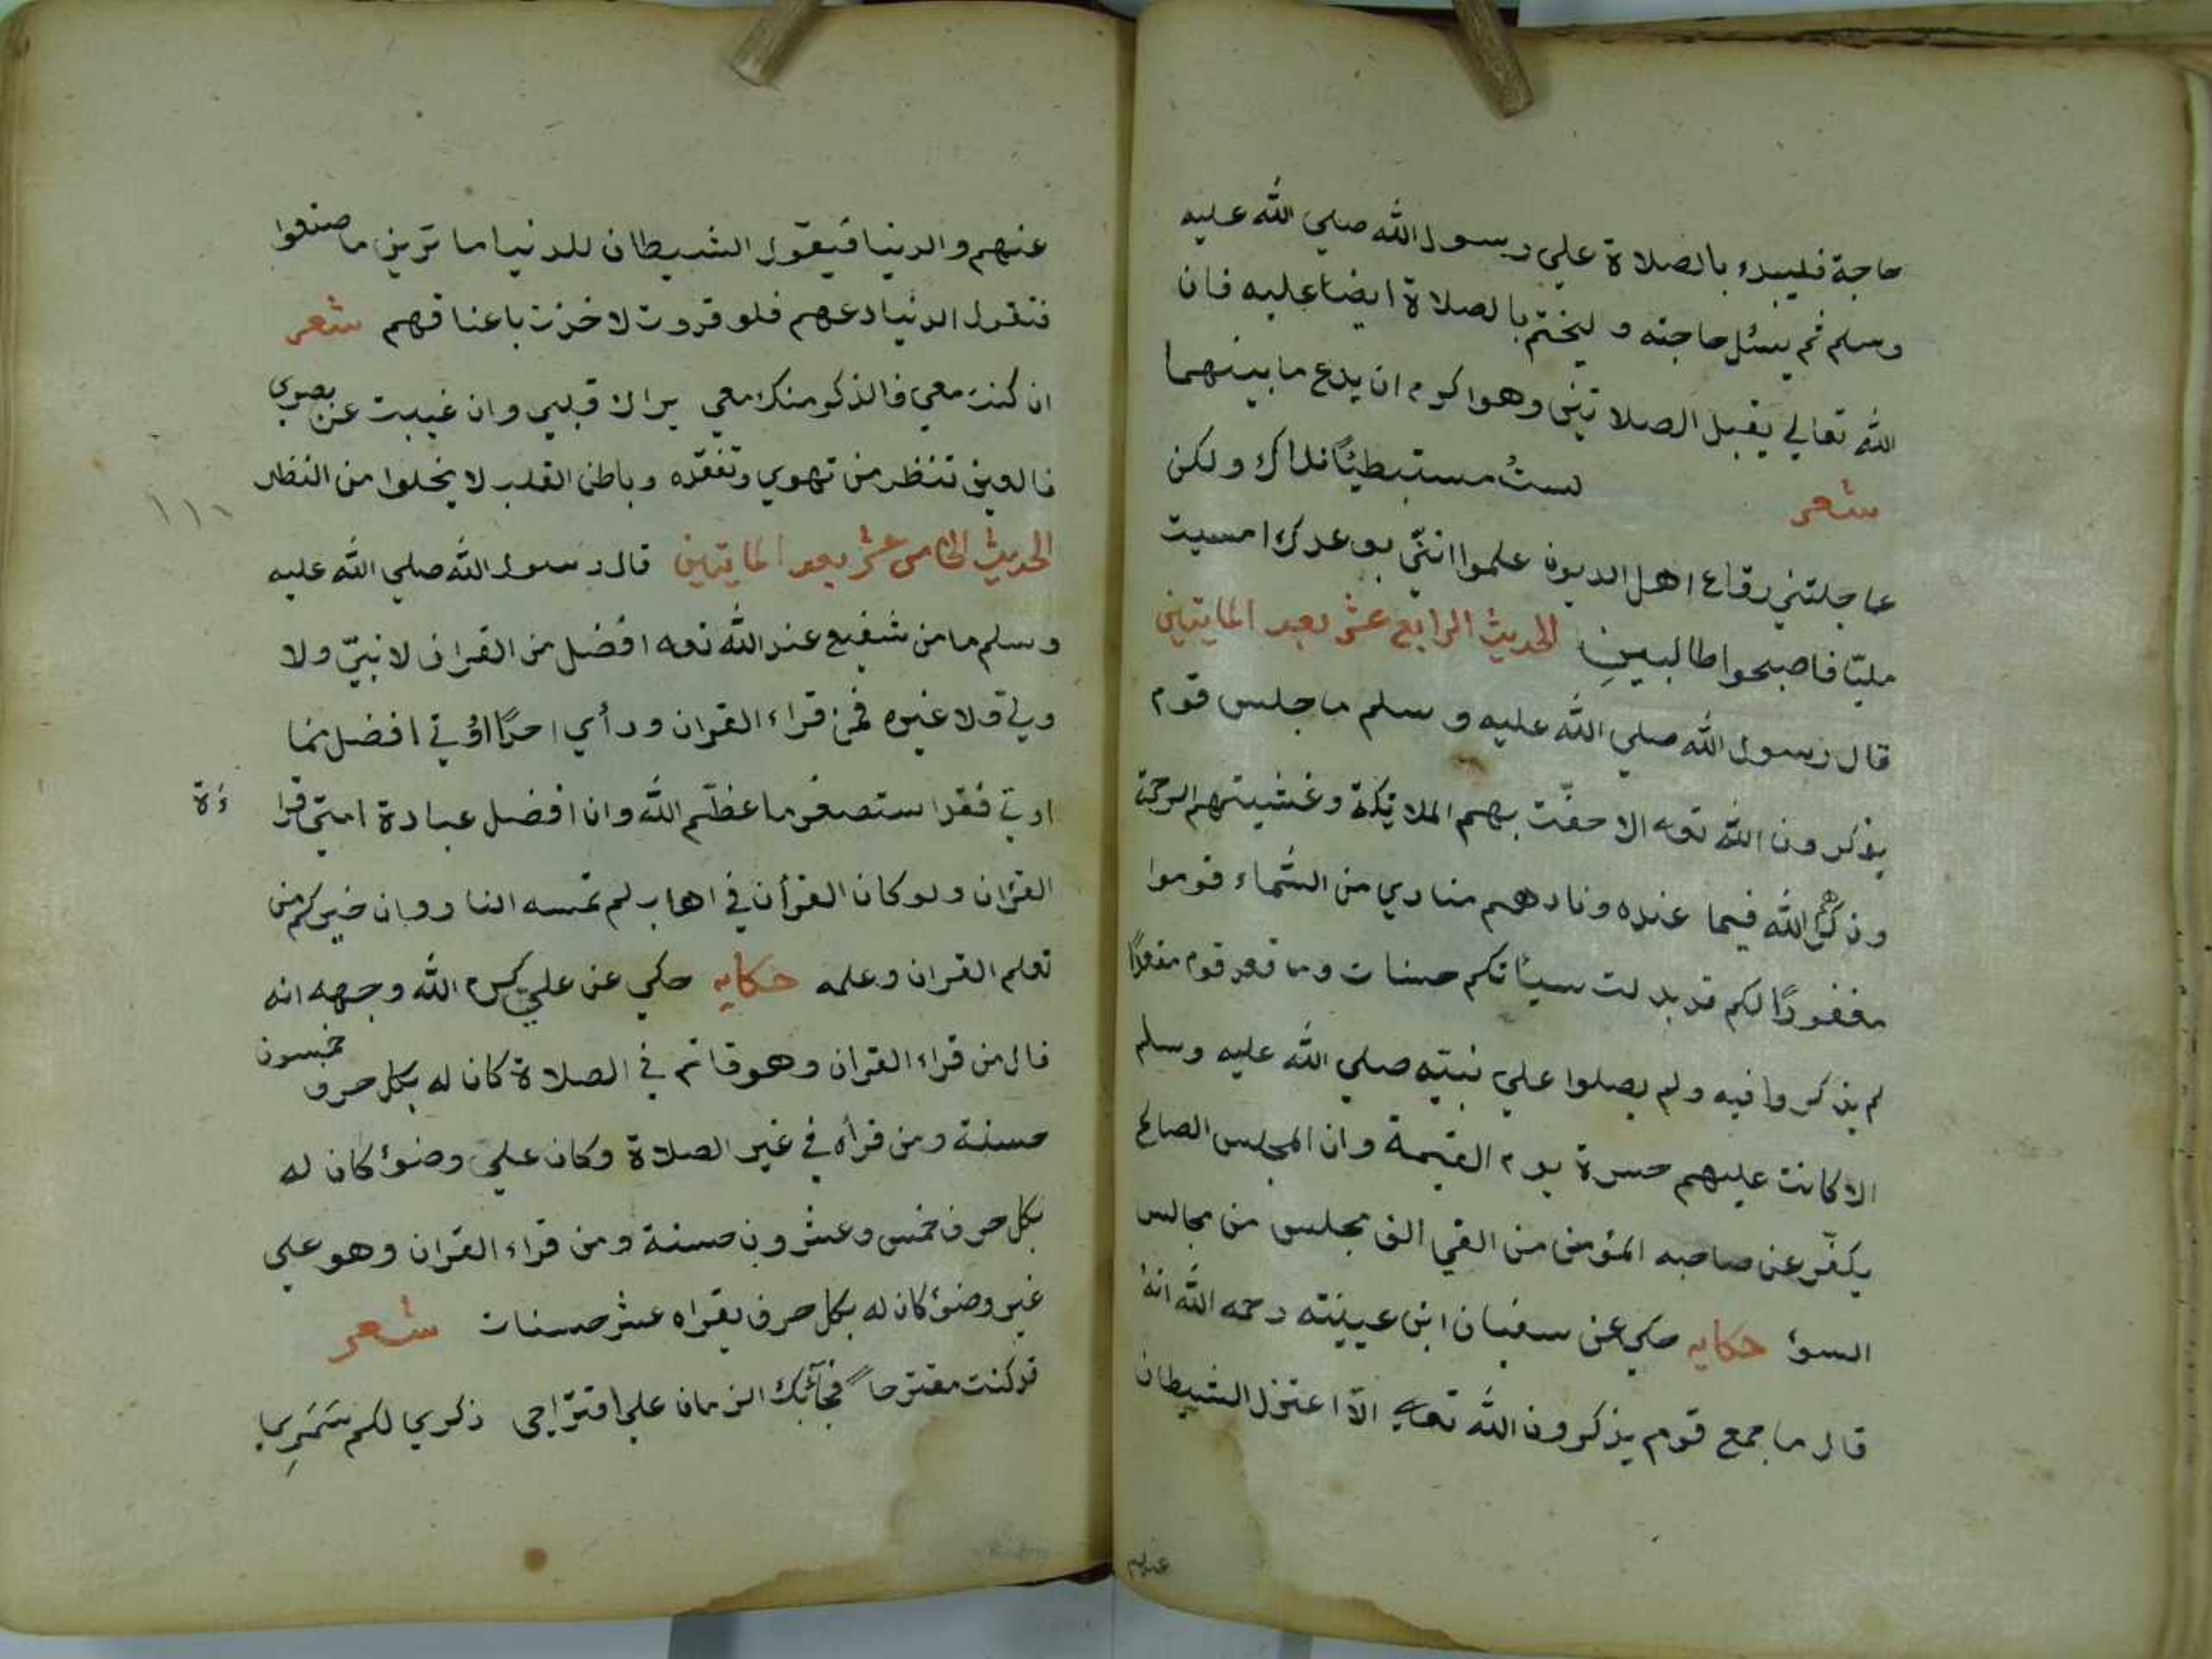 حاجة فليبدء بالصلاة علي رسول الله صلي الله عليه
وسلم ثم يسئل حاجته و ليختم بالصلاة ايضا عليه فان
الله تعالي يقبل الصلاتين وهو اكرم ان يدع ما بينهما
شعر لستُ مستبطئًا نداك ولكن
عاجلتني رقاع اهل الديون علموا انني بوعدك امسيت
مليّا فاصبحوا طالبينِ الحديث الرابع عشر بعد المايتين
قال رسول الله صلي الله عليه و سلم ما جلس قوم
يذكرون الله تعه الا حفّت بهم الملائكة وغشيتهم الرحمة
وذكرهم الله فيما عنده ونادهم منادي من السّماء قوموا
مغفورًا لكم قد بدلت سيئاتكم حسنات وما قعد قوم مقعدًا
لم يذكروا فيه ولم يصلوا علي نبيّه صلي الله عليه وسلم
الا كانت عليهم حسرة يوم القيمة وان المجلس الصالح
يكفّر عن صاحبه المؤمن من الفي الف مجلس من مجالس
السوء حكايه حكي عن سفيان ابن عيينته رحمه الله انهُ
قال ما جمع قوم يذكرون الله تعالي الّا اعتزل الشيطان
عنهم
عنهم والدنيا فيقول الشيطان للدنيا ما ترين ما صنعوا
فتقول الدنيا دعهم فلو قدروت لاخذت باعناقهم شعر
ان كنت معي فالذكر منك معي يراك قلبي وان غيبت عن بصري
فالعين تنظر من تهوي وتفقده وباطن القلب لا يخلوا من النظر
الحديث الخامس عشر بعد المايتين قال رسول الله صلي الله عليه
وسلم ما من شفيع عند الله تعه افضل من القران لا نبيّ ولا
ولي ولا غيره فمن قراء القران ورأي احدًا اوتي افضل مما
اوتي فقد استصغر ما عظّم الله وان افضل عبادة امتي قراءة
القران ولو كان القرأن في اهاب لم تمسه النار وان خيركم من
تعلم القران وعلمه حكايه حكي عن علي كرم الله وجهه انه
قال من قراء القران وهو قائم في الصلاة كان له بكل حرف خمسون
حسنة ومن قرأه في غير الصلاة وكان علي وضوء كان له
بكل حرف خمس وعشرون حسنة ومن قراء القران وهو علي
غير وضوء كان له بكل حرف يقراه عشر حسنات شعر
قد كنت مقترحاً الزمان علي اقتراحي ذكري لكم